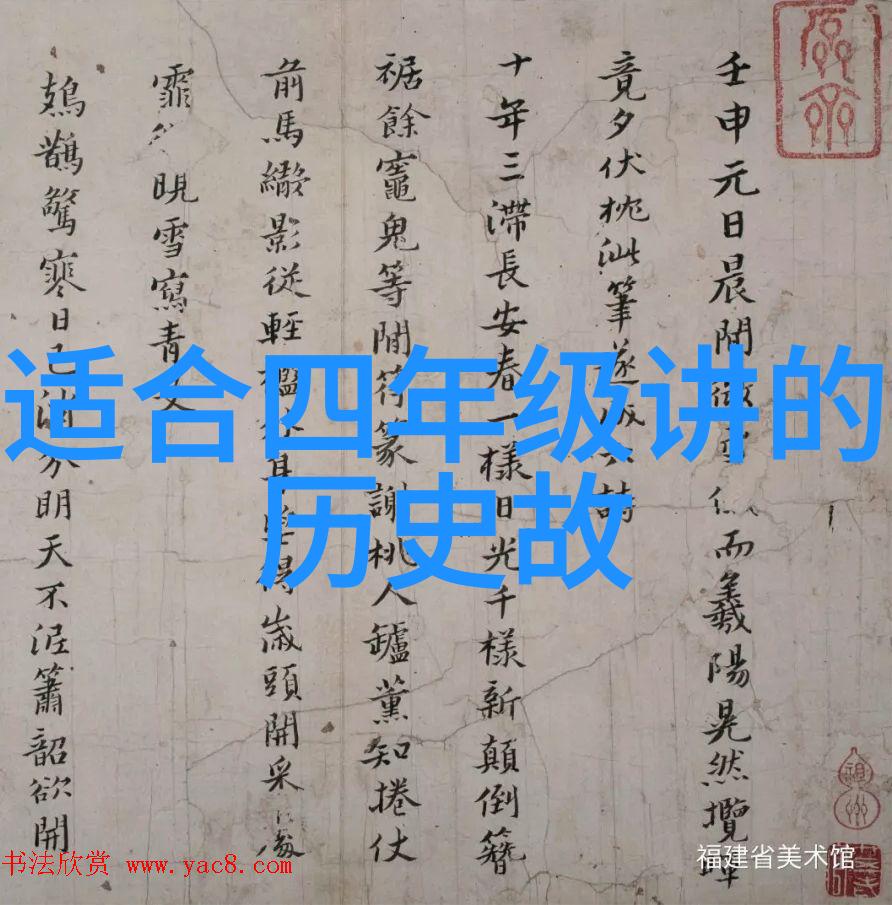 壬申元日晨開微雪
而羲陽晃然攬
竟夕伏枕泚筆遂成六詩
十年三滯長安春一樣日光千樣新顛倒簪
裾餘竈鬼等閒符篆謝桃人鑪薰知捲仗
前馬繖影從輕檻外耳坐得歲頭開采
霏 晛雪寫青
鳷鵲驚寒日已 明天不涊簫韶欲開
适合四年级讲的
历史故
书法欣赏 www.yac8.com
福建省美术馆